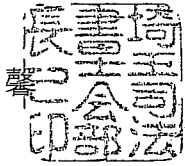 埼玉司法
書士会部
長之印
馨